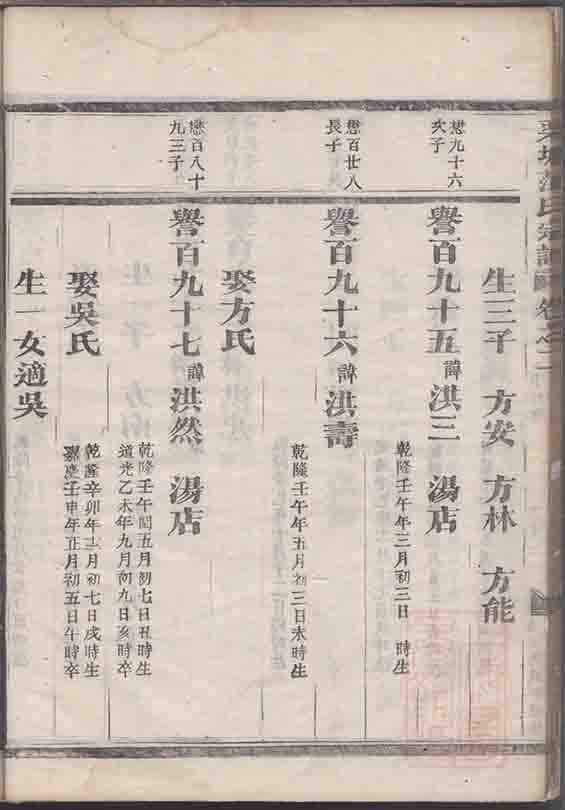 氏宗譜 卷之二
生三子 方安 方林 方能
懋九十六
次子
譽百九十五 諱 洪三 湯店
乾隆壬午年三月初三日 時生
懋百廿八
長子
譽百九十六 諱 洪壽
乾隆壬午年五月初三日未時生
娶方氏
懋百八十
九三子
譽百九十七 諱 洪然 湯店
乾隆壬午閏五月初七日丑時生
道光乙未年九月初九日亥時卒
娶吳氏
乾隆辛卯年 月初七日戌時生
嘉慶壬申年正月初五日午時卒
生一女適吳